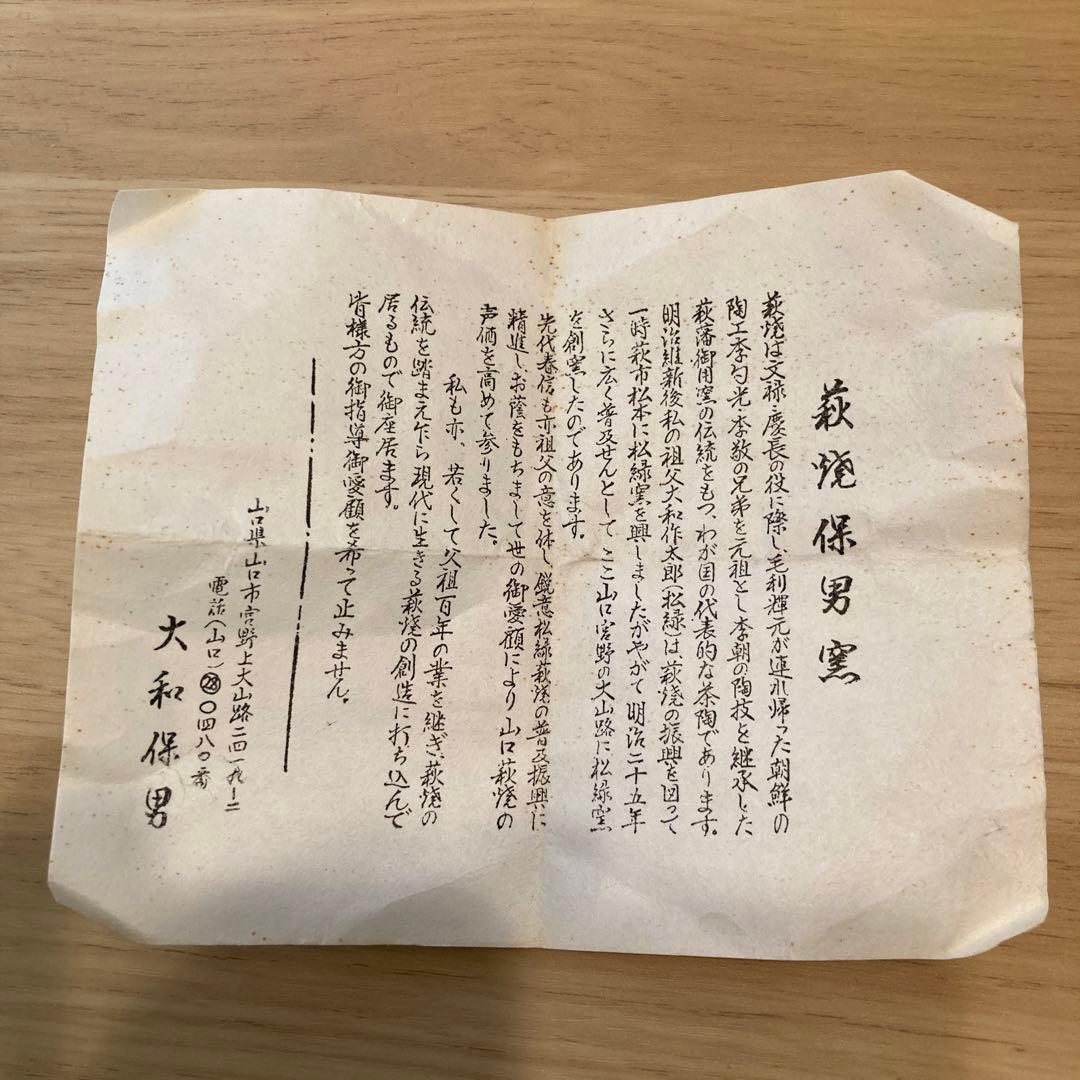 萩焼保男窯
萩焼は文禄・慶長の役に際し、毛利輝元が連れ帰った朝鮮の
陶工李勺光・李敬の兄弟を元祖とし李朝の陶技を継承した
萩藩御用窯の伝統をもつ、わが国の代表的な茶陶であります。
明治維新後私の祖父大和作太郎(松緑)は、萩焼の振興を図って
一時萩市松本に松緑窯を興しましたがやがて明治二十五年
さらに広く普及せんとしてここ山口宮野の大山路に松緑窯
を創窯したのであります。
先代春信も亦祖父の意を体し、鋭意松緑萩焼の普及振興に
精進し、お蔭をもちまして世の御愛顧により山口萩焼の
声価を高めて参りました。
私も亦、若くして父祖百年の業を継ぎ、萩焼の
伝統を踏まえ乍ら現代に生きる萩焼の創造に打ち込んで
居るもので御座居ます。
皆様方の御指導御愛顧を希って止みません。
山口県山口市宮野上大山路二四一九ー二
電話(山口)㉘〇四八〇番
大和保男